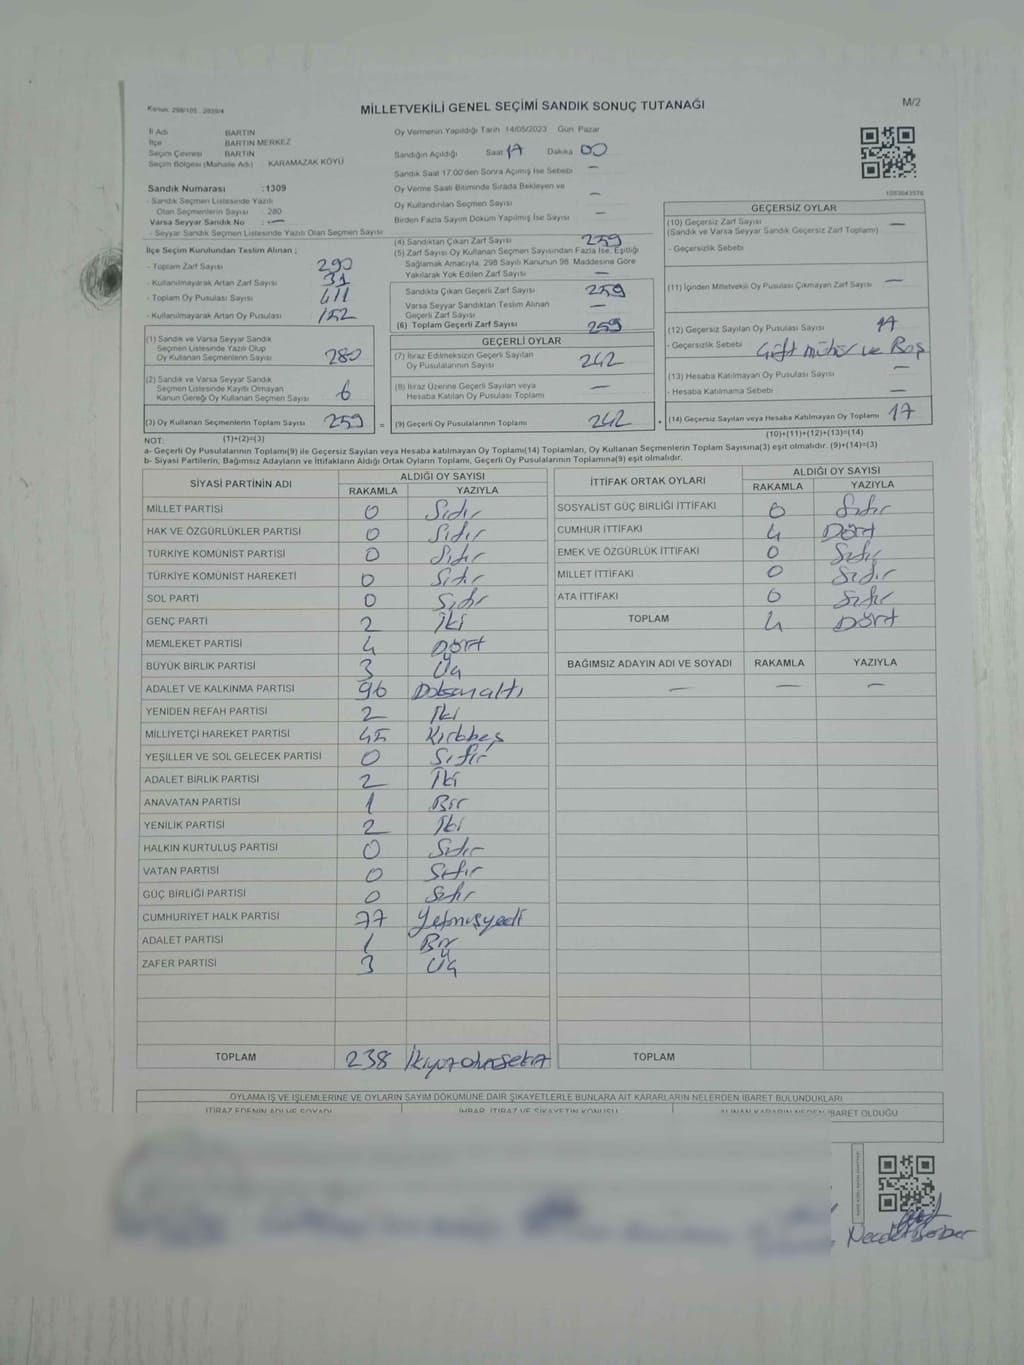 Kanun: 298/105 , 2839/4
MİLLETVEKİLİ GENEL SEÇİMİ SANDIK SONUÇ TUTANAĞI
M/2
İl Adı BARTIN
İlçe BARTIN MERKEZ
Seçim Çevresi BARTIN
Seçim Bölgesi (Mahalle Adı) KARAMAZAK KÖYÜ
Sandık Numarası :1309
- Sandık Seçmen Listesinde Yazılı
Olan Seçmenlerin Sayısı : 280
Varsa Seyyar Sandık No : —
- Seyyar Sandık Seçmen Listesinde Yazılı Olan Seçmen Sayısı
İlçe Seçim Kurulundan Teslim Alınan ;
- Toplam Zarf Sayısı 290
- Kullanılmayarak Artan Zarf Sayısı 31
- Toplam Oy Pusulası Sayısı 411
- Kullanılmayarak Artan Oy Pusulası 152
(1) Sandık ve Varsa Seyyar Sandık
Seçmen Listesinde Yazılı Olup
Oy Kullanan Seçmenlerin Sayısı 280
(2) Sandık ve Varsa Seyyar Sandık
Seçmen Listesinde Kayıtlı Olmayan
Kanun Gereği Oy Kullanan Seçmen Sayısı 6
(3) Oy Kullanan Seçmenlerin Toplam Sayısı 259
Oy Vermenin Yapıldığı Tarih :14/05/2023 Gün: Pazar
Sandığın Açıldığı Saat 17 Dakika 00
Sandık Saat 17:00'den Sonra Açılmış İse Sebebi —
Oy Verme Saati Bitiminde Sırada Bekleyen ve
Oy Kullandırılan Seçmen Sayısı —
Birden Fazla Sayım Döküm Yapılmış İse Sayısı —
(4) Sandıktan Çıkan Zarf Sayısı 259
(5) Zarf Sayısı Oy Kullanan Seçmen Sayısından Fazla İse, Eşitliği
Sağlamak Amacıyla; 298 Sayılı Kanunun 98. Maddesine Göre
Yakılarak Yok Edilen Zarf Sayısı —
Sandıkta Çıkan Geçerli Zarf Sayısı 259
Varsa Seyyar Sandıktan Teslim Alınan
Geçerli Zarf Sayısı —
(6) Toplam Geçerli Zarf Sayısı 259
GEÇERLİ OYLAR
(7) İtiraz Edilmeksizin Geçerli Sayılan
Oy Pusulalarının Sayısı 242
(8) İtiraz Üzerine Geçerli Sayılan veya
Hesaba Katılan Oy Pusulası Toplamı —
= (9) Geçerli Oy Pusulalarının Toplamı 242
1083643576
GEÇERSİZ OYLAR
(10) Geçersiz Zarf Sayısı —
(Sandık ve Varsa Seyyar Sandık Geçersiz Zarf Toplamı)
- Geçersizlik Sebebi
(11) İçinden Milletvekili Oy Pusulası Çıkmayan Zarf Sayısı —
(12) Geçersiz Sayılan Oy Pusulası Sayısı 17
- Geçersizlik Sebebi Çift mühür ve Boş
(13) Hesaba Katılmayan Oy Pusulası Sayısı —
- Hesaba Katılmama Sebebi —
+ (14) Geçersiz Sayılan veya Hesaba Katılmayan Oy Toplamı 17
NOT: (1)+(2)=(3) (10)+(11)+(12)+(13)=(14)
a- Geçerli Oy Pusulalarının Toplamı(9) ile Geçersiz Sayılan veya Hesaba katılmayan Oy Toplamı(14) Toplamları, Oy Kullanan Seçmenlerin Toplam Sayısına(3) eşit olmalıdır. (9)+(14)=(3)
b- Siyasi Partilerin, Bağımsız Adayların ve İttifakların Aldığı Oyların Toplamı, Geçerli Oy Pusulalarının Toplamına(9) eşit olmalıdır.
SİYASİ PARTİNİN ADI ALDIĞI OY SAYISI
RAKAMLA YAZIYLA
MİLLET PARTİSİ 0 Sıfır
HAK VE ÖZGÜRLÜKLER PARTİSİ 0 Sıfır
TÜRKİYE KOMÜNİST PARTİSİ 0 Sıfır
TÜRKİYE KOMÜNİST HAREKETİ 0 Sıfır
SOL PARTİ 0 Sıfır
GENÇ PARTİ 2 İki
MEMLEKET PARTİSİ 4 Dört
BÜYÜK BİRLİK PARTİSİ 3 Üç
ADALET VE KALKINMA PARTİSİ 96 Doksanaltı
YENİDEN REFAH PARTİSİ 2 İki
MİLLİYETÇİ HAREKET PARTİSİ 45 Kırkbeş
YEŞİLLER VE SOL GELECEK PARTİSİ 0 Sıfır
ADALET BİRLİK PARTİSİ 2 İki
ANAVATAN PARTİSİ 1 Bir
YENİLİK PARTİSİ 2 İki
HALKIN KURTULUŞ PARTİSİ 0 Sıfır
VATAN PARTİSİ 0 Sıfır
GÜÇ BİRLİĞİ PARTİSİ 0 Sıfır
CUMHURİYET HALK PARTİSİ 77 Yetmişyedi
ADALET PARTİSİ 1 Bir
ZAFER PARTİSİ 3 Üç
TOPLAM 238 İkiyüzotuzsekiz
İTTİFAK ORTAK OYLARI ALDIĞI OY SAYISI
RAKAMLA YAZIYLA
SOSYALİST GÜÇ BİRLİĞİ İTTİFAKI 0 Sıfır
CUMHUR İTTİFAKI 4 Dört
EMEK VE ÖZGÜRLÜK İTTİFAKI 0 Sıfır
MİLLET İTTİFAKI 0 Sıfır
ATA İTTİFAKI 0 Sıfır
TOPLAM 4 Dört
BAĞIMSIZ ADAYIN ADI VE SOYADI RAKAMLA YAZIYLA
— — —
TOPLAM
OYLAMA İŞ VE İŞLEMLERİNE VE OYLARIN SAYIM DÖKÜMÜNE DAİR ŞİKAYETLERLE BUNLARA AİT KARARLARIN NELERDEN İBARET BULUNDUKLARI
İTİRAZ EDENİN ADI VE SOYADI İHBAR, İTİRAZ VE ŞİKAYETİN KONUSU ALINAN KARARIN NEDEN İBARET OLDUĞU